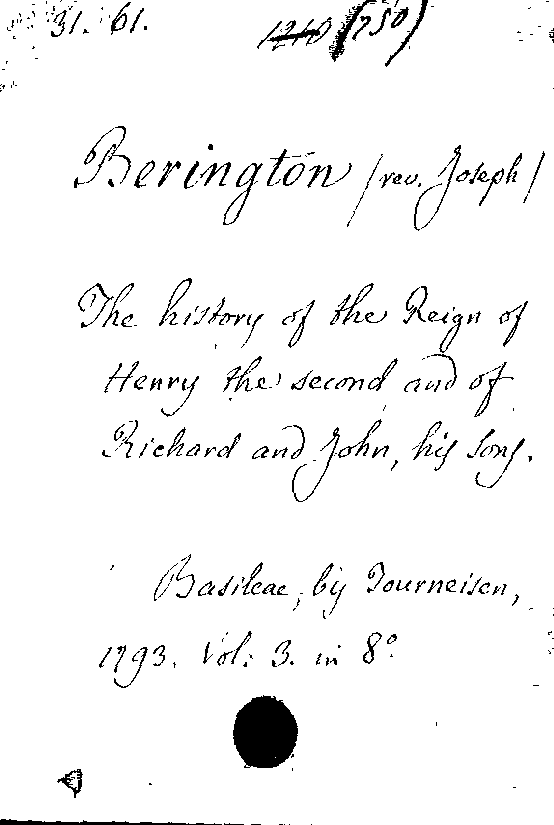 31. 61.
1210 (750)
Berington /rev. Joseph/
The history of the Reign of
Henry the second and of
Richard and John, his sons.
Basileae, by Tourneisen,
1793. Vol: 3. in 8°